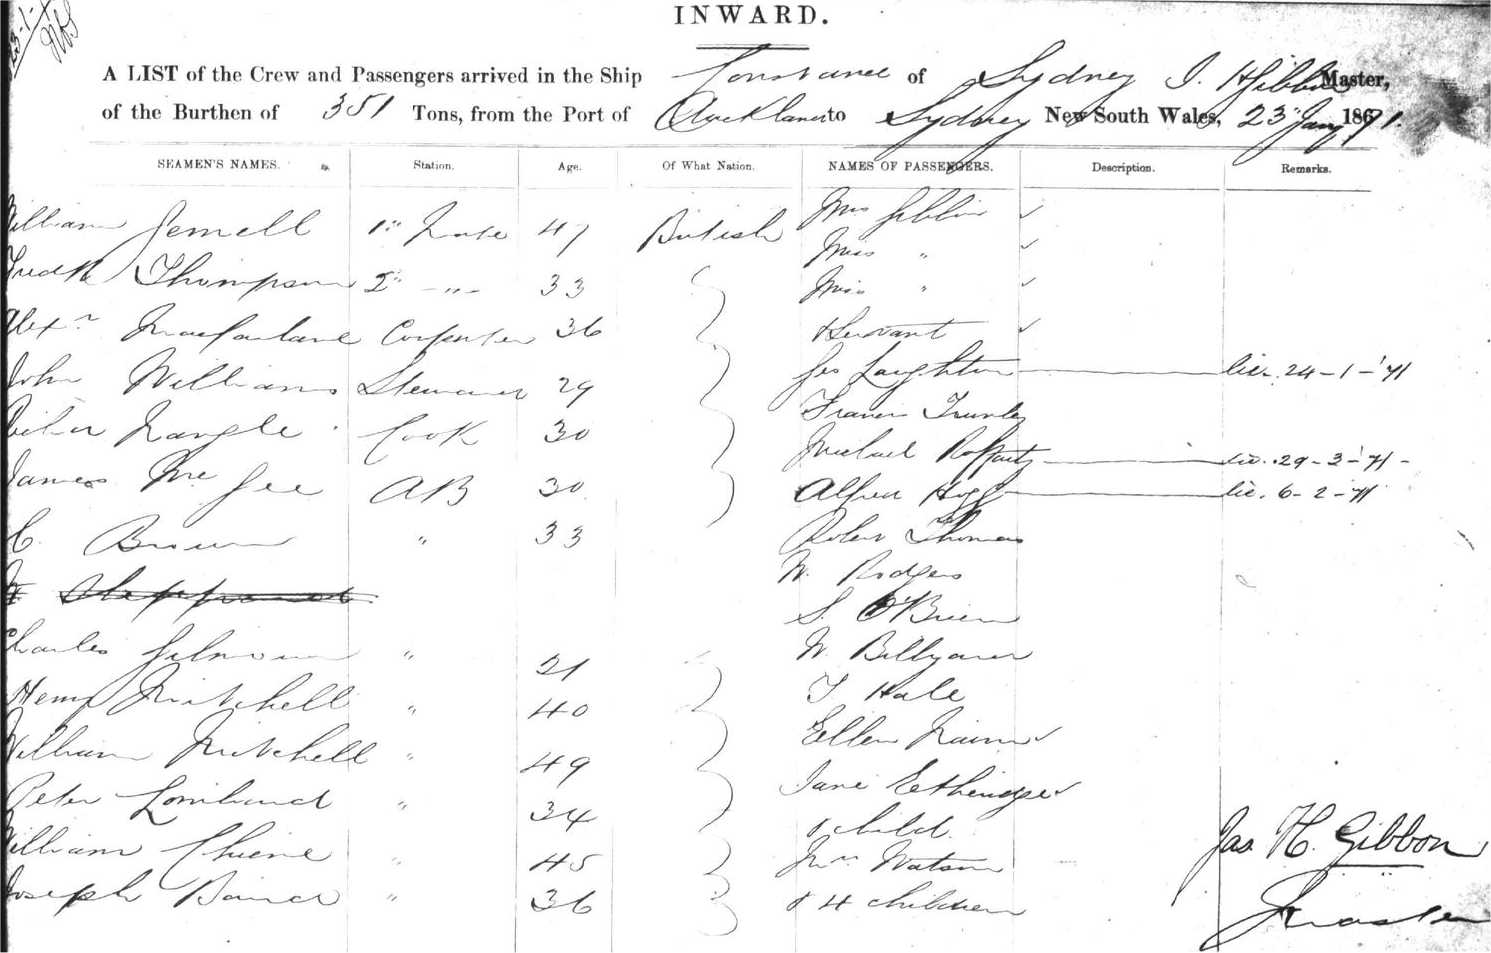 23-1-
INWARD.
A LIST of the Crew and Passengers arrived in the Ship Constance of Sydney J. H Gibbon Master,
of the Burthen of 351 Tons, from the Port of Auckland to Sydney New South Wales, 23 Jany 1871.
SEAMEN'S NAMES. Station. Age. Of What Nation. NAMES OF PASSENGERS. Description. Remarks.
William Jewell 1st Mate 47 British Mrs Gibbon ✓
Miss " ✓
Fredk Thompson 2nd -"- 33 Miss " ✓
Alexr Macfarlane Carpenter 36 & Servant ✓
John Williams Steward 29 Geo Laughton lic. 24-1-'71
Nangle Cook 30 Francis
James McGee AB 30 Michael Rafferty lic. 29-3-'71-
Alfred lic. 6-2-'71
C. Brown " 33 Robert Thomas
W. Rodgers
S. O'Brien
Charles Gilmour " 21 W. Billyard
Henry Mitchell " 40 T Hale
William Mitchell " 49 Ellen ✓
Peter Lombard " 34 Jane Etheridge ✓
& child
William " 45 Mrs Watson
Joseph Baird " 36 & 4 children
Jas. H. Gibbon
Master